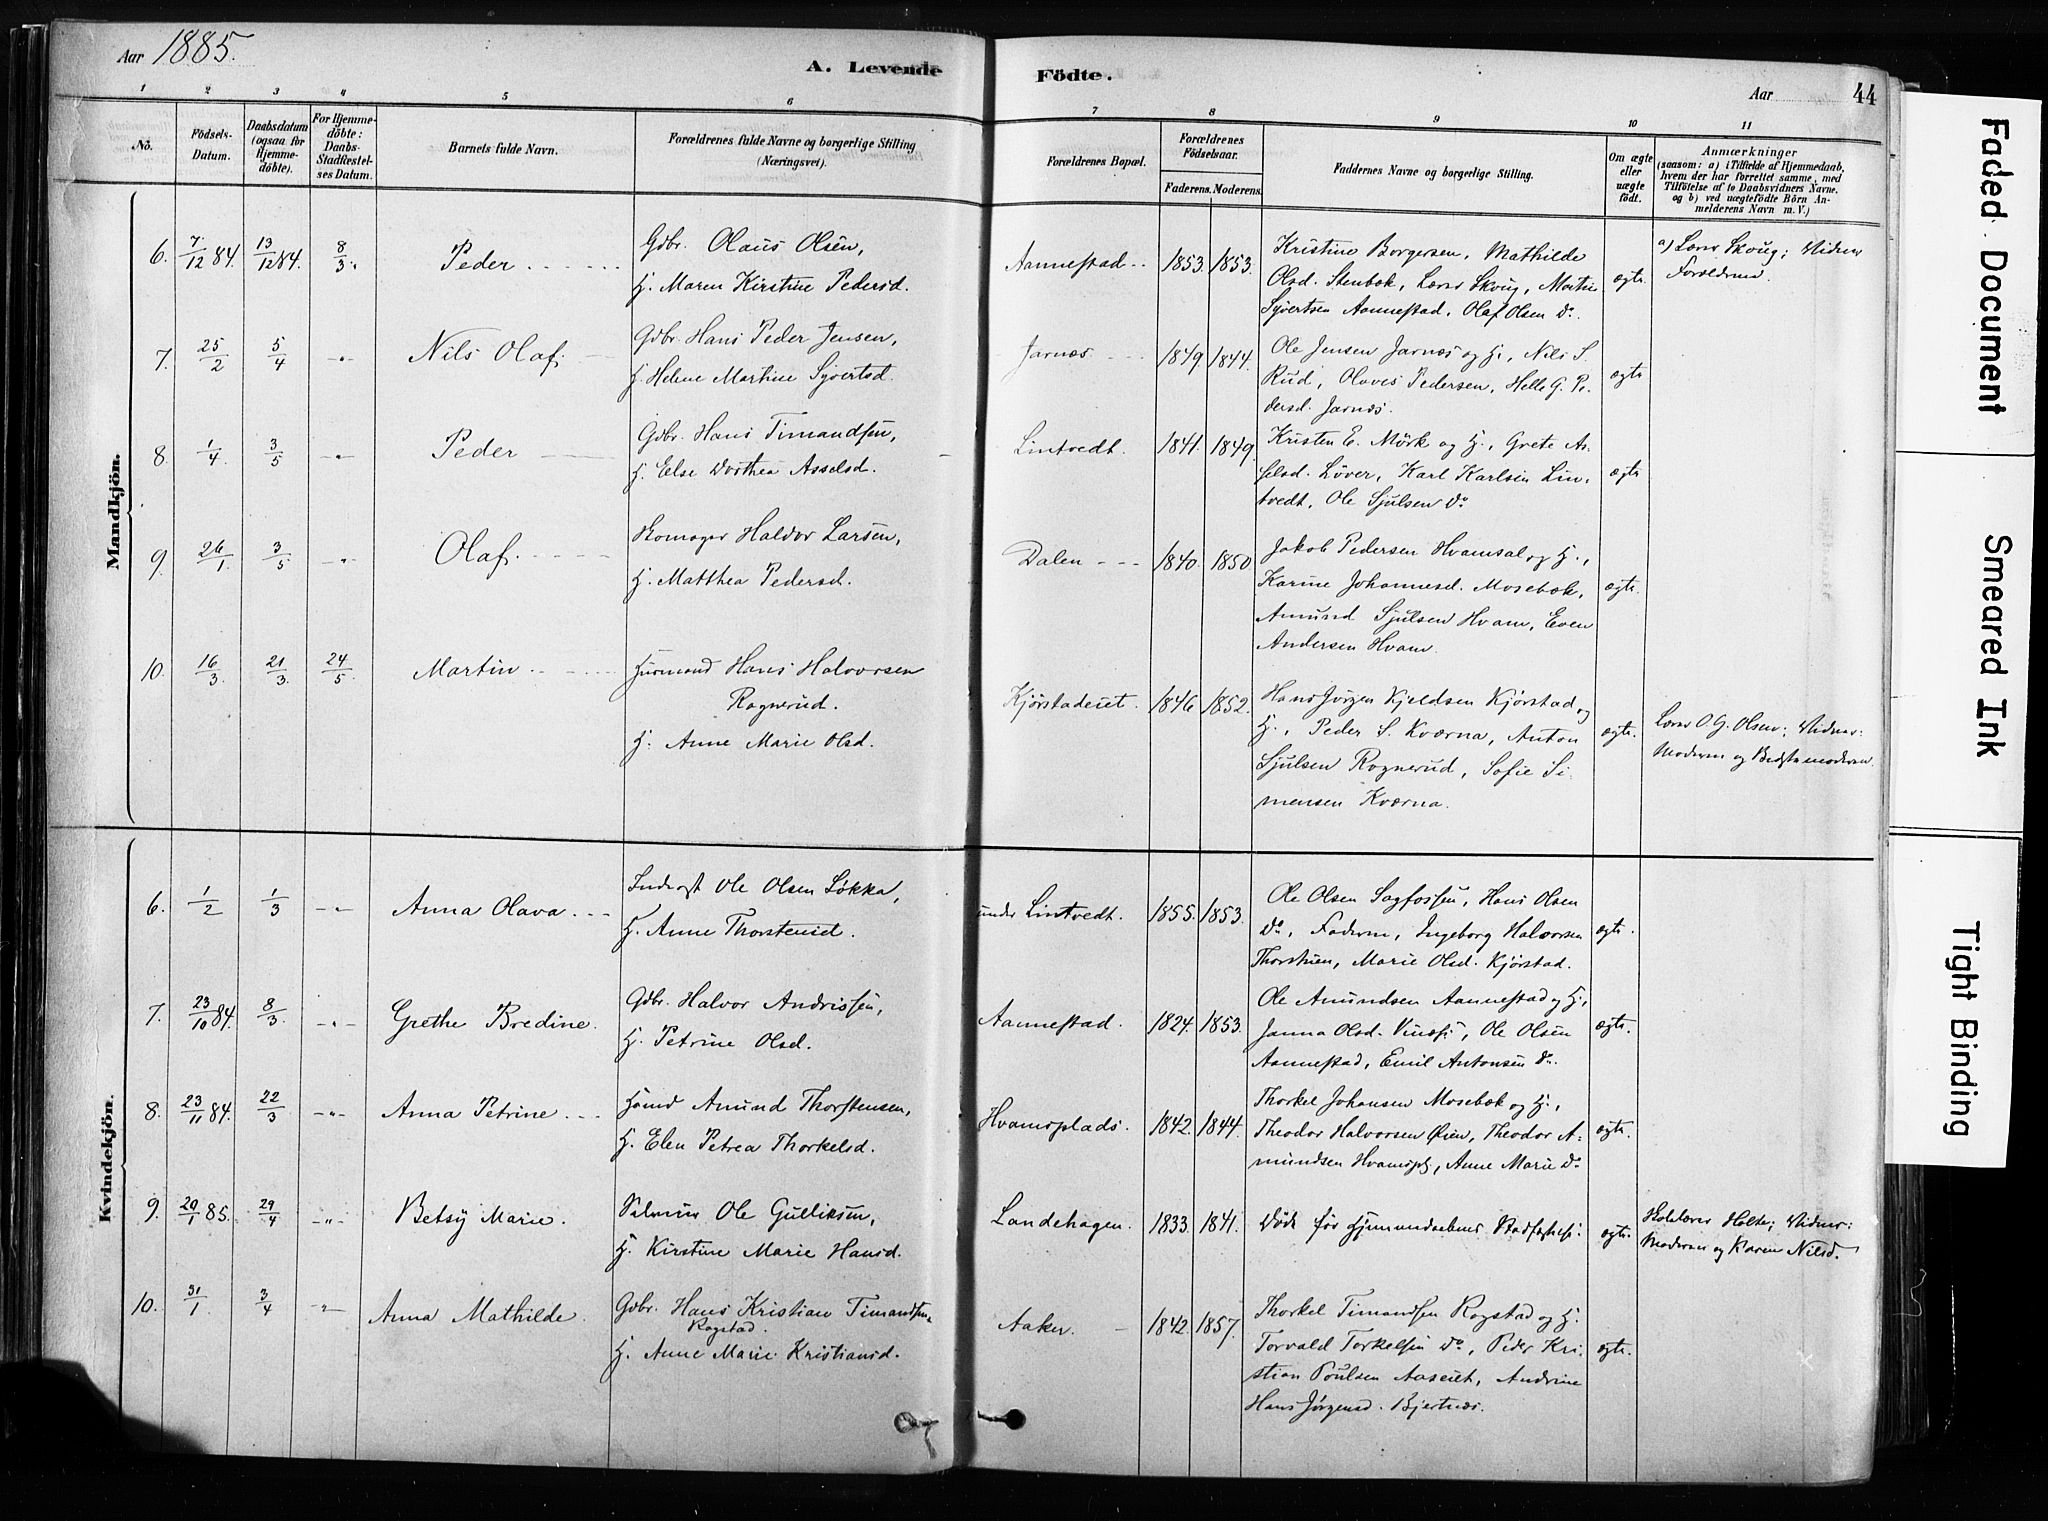 Aar 1885.
A. Levende Födte.
Aar
44
1 2 3 4 5 6 7 8 9 10 11
No.
Födsels-Datum.
Daabsdatum (ogsaa for Hjemme-döbte).
For Hjemme-döbte: Daabs-Stadfæstel-ses Datum.
Barnets fulde Navn.
Forældrenes fulde Navne og borgerlige Stilling (Næringsvei).
Forældrenes Bopæl.
Forældrenes Födselsaar.
Faderens. Moderens.
Faddernes Navne og borgerlige Stilling.
Om ægte eller uægte födt.
Anmærkninger
(saasom: a) i Tilfælde af Hjemmedaab, hvem der har forrettet samme, med Tilföielse af to Daabsvidners Navne. og b) ved uægtefödte Börn An-melderens Navn m. V.)
Mandkjön.
6. 7/12 84. 13/12 84. 8/3. Peder
Gdbr. Olaus Olsen,
H. Maren Kirstine Pedersd.
Aannestad 1853. 1853.
Kristine Borgersen, Mathilde
Olsd. Stenbæk, Lærer Skoug, Martin
Syvertsen Aannestad, Olaf Olsen Do.
ægte.
a) Lærer Skoug; Vidner
Forældrene.
7. 25/2 5/4 -"- Nils Olaf.
Gdbr. Hans Peder Jensen,
H. Helene Martine Syvertsd.
Jarnæs 1849 1844.
Ole Jensen Jarnæs og H., Nils S.
Rud, Olaves Pedersen, Helle G. Pe-
dersd. Jarnæs.
ægte
8. 1/4. 3/5 -"- Peder
Gdbr. Hans Timandsen,
H. Else Dorthea Asselsd.
Lintvedt. 1841. 1849.
Kristen E. Mörk og H., Grete As-
selsd. Löver, Karl Karlsen Lin-
tvedt, Ole Sjulsen Do
ægte
9. 26/1. 3/5 -"- Olaf.
Skomager Haldor Larsen,
H. Matthea Pedersd.
Dalen 1840. 1850.
Jakob Pedersen Hvamsal og H.,
Karine Johannesd. Mosebæk,
Amund Sjulsen Hvam, Even
Andersen Hvam.
ægte.
10. 16/3. 21/3. 24/5 Martin
Husmand Hans Halvorsen
Rognerud.
H. Anne Marie Olsd.
Kjörstadeiet. 1846 1852.
Hans Jörgen Kjeldsen Kjörstad og
H., Peder S. Kværna, Anton
Sjulsen Rognerud, Sofie Si-
mensen Kværna.
ægte.
Lærer O. G. Olsen; Vidner:
Moderen og Bedstemoderen.
Kvindekjön.
6. 1/2 1/3 -"- Anna Olava
Inderst Ole Olsen Løkka,
H. Anne Thorstensd.
under Lintvedt. 1855. 1853.
Ole Olsen Sagfossen, Hans Olsen
Do, Faderen, Ingeborg Halvorsen
Thorstuen, Marie Olsd. Kjörstad.
ægte.
7. 23/10 84. 8/3. -"- Grethe Bredine.
Gdbr. Halvor Andrissen,
H. Petrine Olsd.
Aannestad. 1824. 1853.
Ole Amundsen Aannestad og H.,
Janna Olsd. Ole Olsen
Aannestad, Emil Antonsen Do.
ægte.
8. 23/11 84. 22/3 -"- Anna Petrine
Husmd Amund Thorstensen,
H. Elen Petrea Thorkelsd.
Hvamsplads. 1842. 1844.
Thorkel Johansen Mosebæk og H.,
Theodor Halvorsen Øien, Theodor A-
mundsen Hvamspl, Anne Marie Do
ægte.
9. 20/1 85. 29/4 -"- Betsy Marie.
Ole Gulliksen,
H. Kirstine Marie Hansd.
Landehagen. 1833. 1841.
Död för Hjemmedaabens Stadfæstelse.
ægte.
Skolelærer Holte; Vidner:
Moderen og Karen Nilsd.
10. 31/1 3/4 -"- Anna Mathilde.
Gdbr. Hans Kristian Timandsen
Rogstad.
H. Anne Marie Kristiansd.
Aaker. 1842. 1857.
Thorkel Timandsen Rogstad og H.
Torvald Torkelsen Do, Peder Kri-
stian Poulsen Aaseiet, Andrine
Hans Jörgensd. Bjertnæs.
ægte.
Faded Document
Smeared Ink
Tight Binding